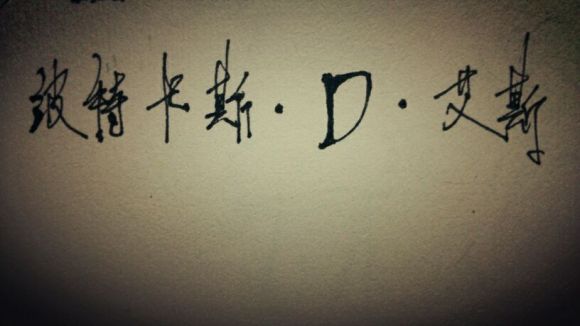 波特卡斯·D·艾斯